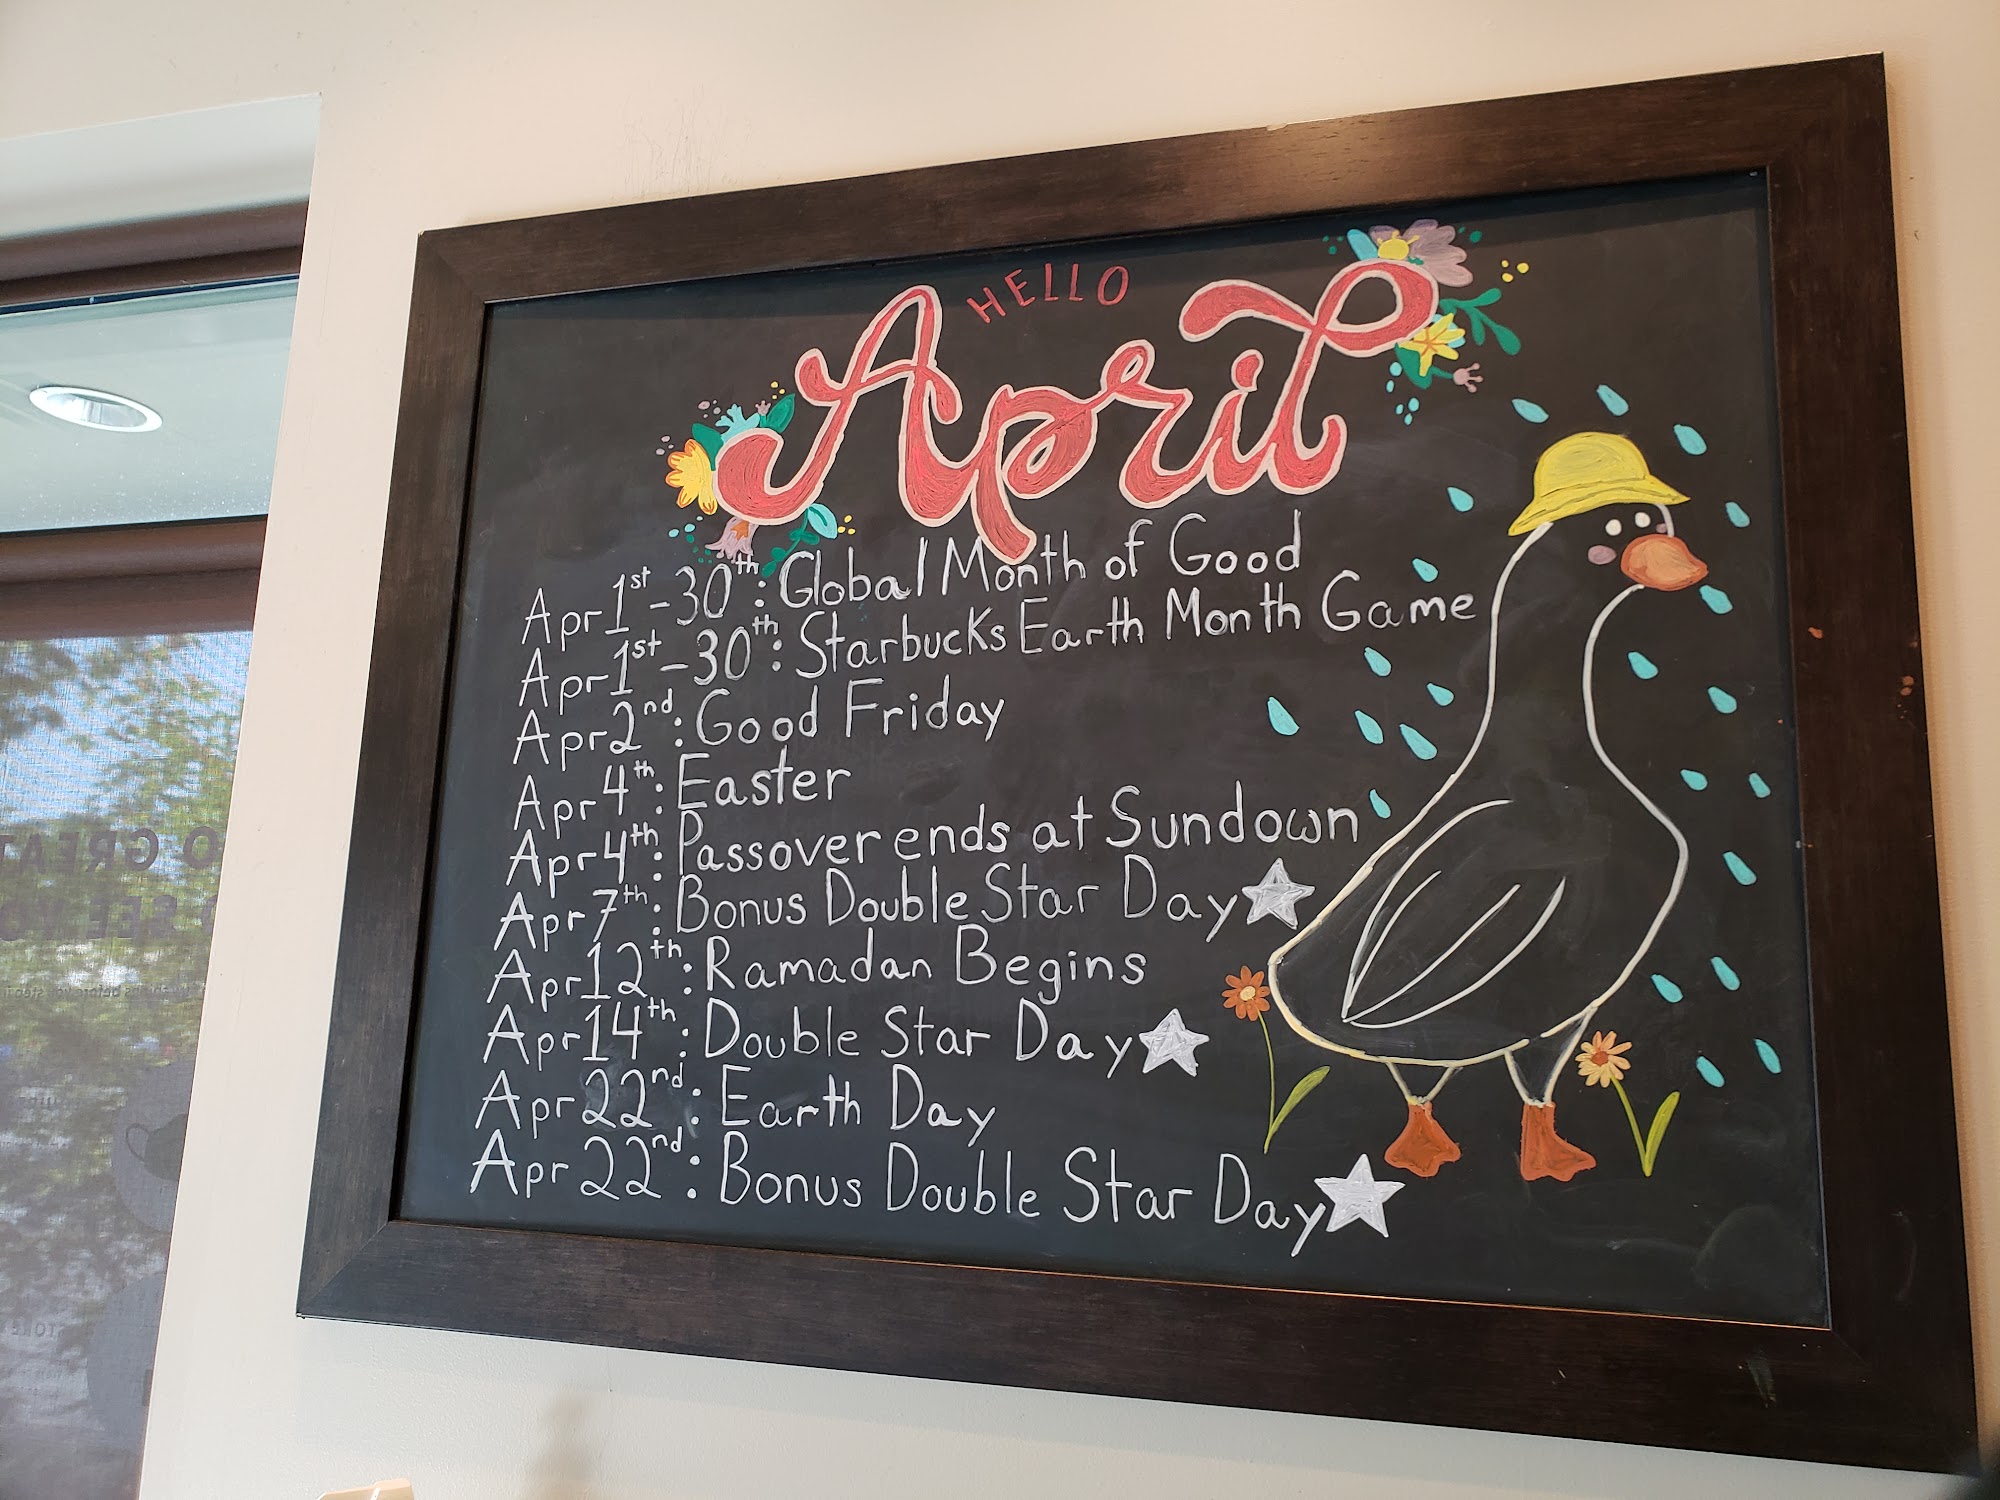 HELLO
April
Apr 1st-30th: Global Month of Good
Apr 1st-30th: Starbucks Earth Month Game
Apr 2nd: Good Friday
Apr 4th: Easter
Apr 4th: Passover ends at Sundown
Apr 7th: Bonus Double Star Day
Apr 12th: Ramadan Begins
Apr 14th: Double Star Day
Apr 22nd: Earth Day
Apr 22nd: Bonus Double Star Day
GREAT